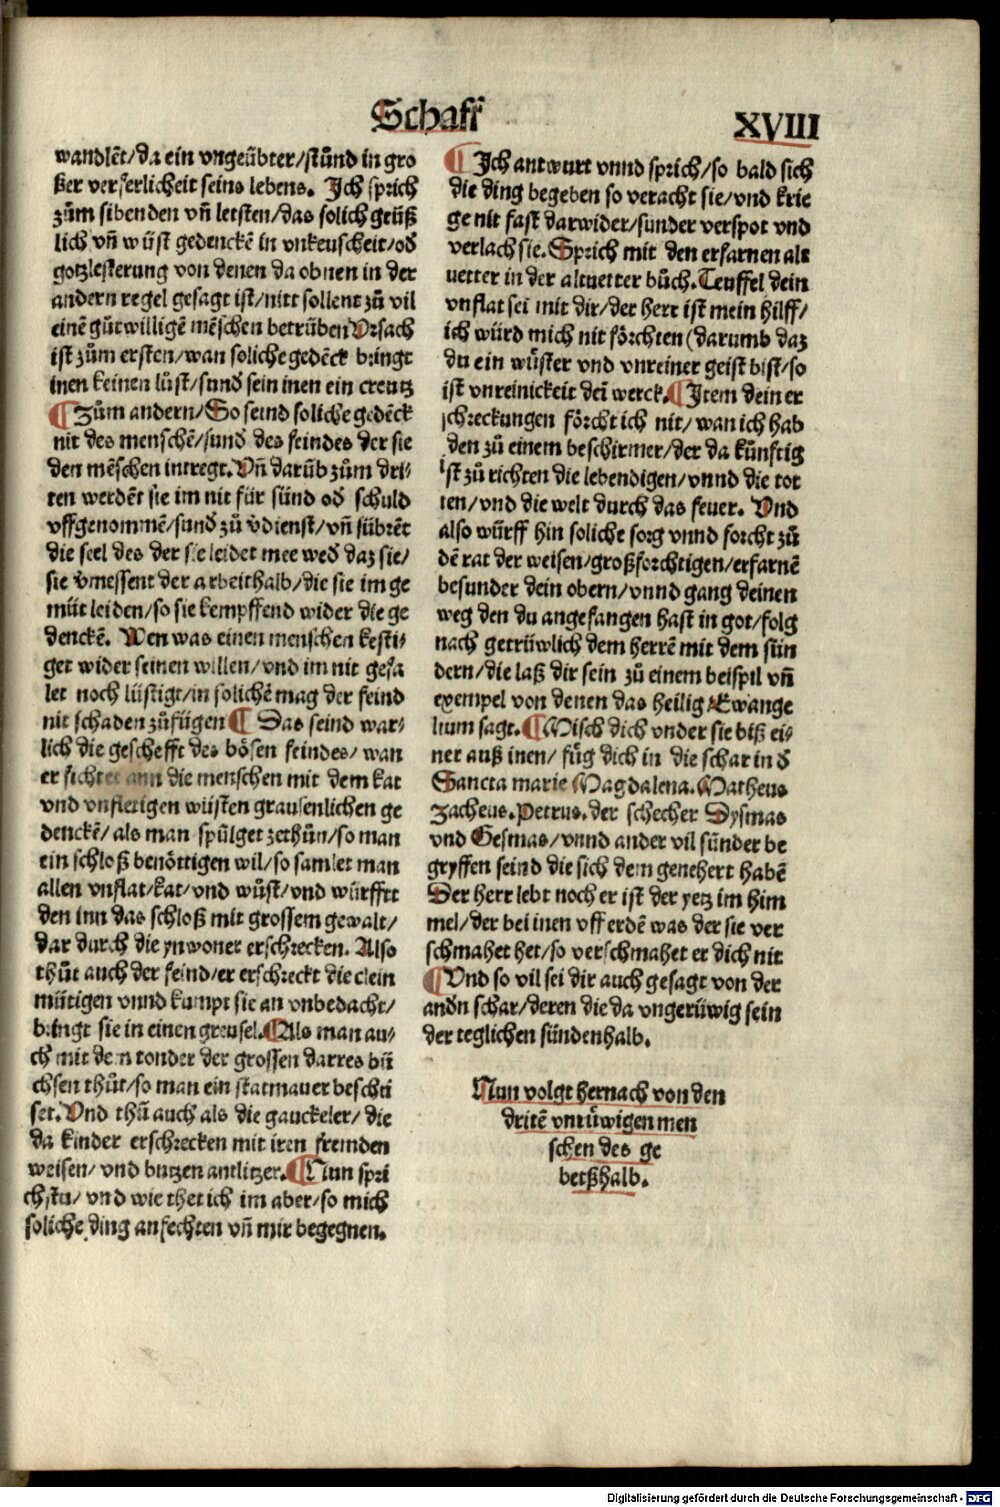 Schaff
XVIII
wandlēt/da ein vngeübter/stůnd in gro
ßer verserlicheit seins lebens. Jch sprich
zům sibenden vñ letsten/das solich grüß
lich vñ wüst gedenckē in vnkeuscheit/od
gotzlesterung von denen da obnen in der
andern regel gesagt ist/nitt sollent zů vil
einē gůtwilligē mēschen betrüben Vrsach
ist zům ersten/wan soliche gedēck bringt
inen keinen lüst/sund sein inen ein creutz
¶ Zům andern/So seind soliche gedēck
nit des menschē/sund des feindes der sie
den mēschen intregt. Vñ darüb zům dri-
ten werdēt sie im nit für sünd od schuld
vffgenommē/sund zů vdienst/vñ fübrēt
die seel des der sie leidet mee wed daz sie/
sie vmessent der arbeithalb/die sie im ge
müt leiden/so sie kempffend wider die ge
denckē. Wen was einen menschen kesti-
get wider seinen willen/vnd im nit gefa
let noch lüstigt/in solichē mag der feind
nit schaden zůfügen ¶ Das seind war-
lich die geschefft des bösen feindes/wan
er fichtet ann die menschen mit dem kat
vnd vnfletigen wüsten grausenlichen ge
denckē/als man spülget zethůn/so man
ein schloß benöttigen wil/so samlet man
allen vnflat/kat/vnd wůst/vnd würfftt
den inn das schloß mit grossem gewalt/
dar durch die ynwoner erschrecken. Also
thůt auch der feind/er erschreckt die clein
mütigen vnnd kumpt sie an vnbedacht/
bringt sie in einen greusel. ¶ Als man au-
ch mit dem tonder der grossen darres bü
chsen thůt/so man ein statmauer beschü
set. Vnd thů auch als die gauckeler/die
da kinder erschrecken mit iren fremden
weisen/vnd butzen antlitzer. ¶ Nun spri
chstu/vnd wie thet ich im aber/so mich
soliche ding anfechten vñ mir begegnen.
¶ Jch antwurt vnnd sprich/so bald sich
die ding begeben so veracht sie/vnd krie
ge nit fast darwider/sunder verspot vnd
verlach sie. Sprich mit den erfarnen alt
uetter in der altuetter bůch. Teuffel dein
vnflat sei mit dir/der herr ist mein hilff/
ich würd mich nit förchten (darumb daz
du ein wüster vnd vnreiner geist bist/so
ist vnreinickeit dei werck. ¶ Jtem dein er
schreckungen förcht ich nit/wan ich hab
den zů einem beschirmer/der da künftig
ist zů richten die lebendigen/vnnd die tot
ten/vnd die welt durch das feuer. Vnd
also würff hin soliche sorg vnnd forcht zů
dē rat der weisen/großforchtigen/erfarnē
besunder dein obern/vnnd gang deinen
weg den du angefangen hast in got/folg
nach getrüwlich dem herrē mit dem sün
dern/die laß dir sein zů einem beispil vñ
exempel von denen das heilig Ewange
lium sagt. ¶ Misch dich vnder sie biß ei-
ner auß inen/füg dich in die schar in d
Sancta marie Magdalena. Matheus
Zacheus. Petrus. der schecher Dysmas
vnd Gesmas/vnnd ander vil sünder be
gryffen seind die sich dem genehert habē
Der herr lebt noch er ist der yetz im him
mel/der bei inen vff erdē was der sie ver
schmahet het/so verschmahet er dich nit
¶ Vnd so vil sei dir auch gesagt von der
andn schar/deren die da vngerüwig sein
der teglichen sündenhalb.
Nun volgt hernach von den
dritē vnrüwigen men
schen des ge
betßhalb.
Digitalisierung gefördert durch die Deutsche Forschungsgemeinschaft - DFG